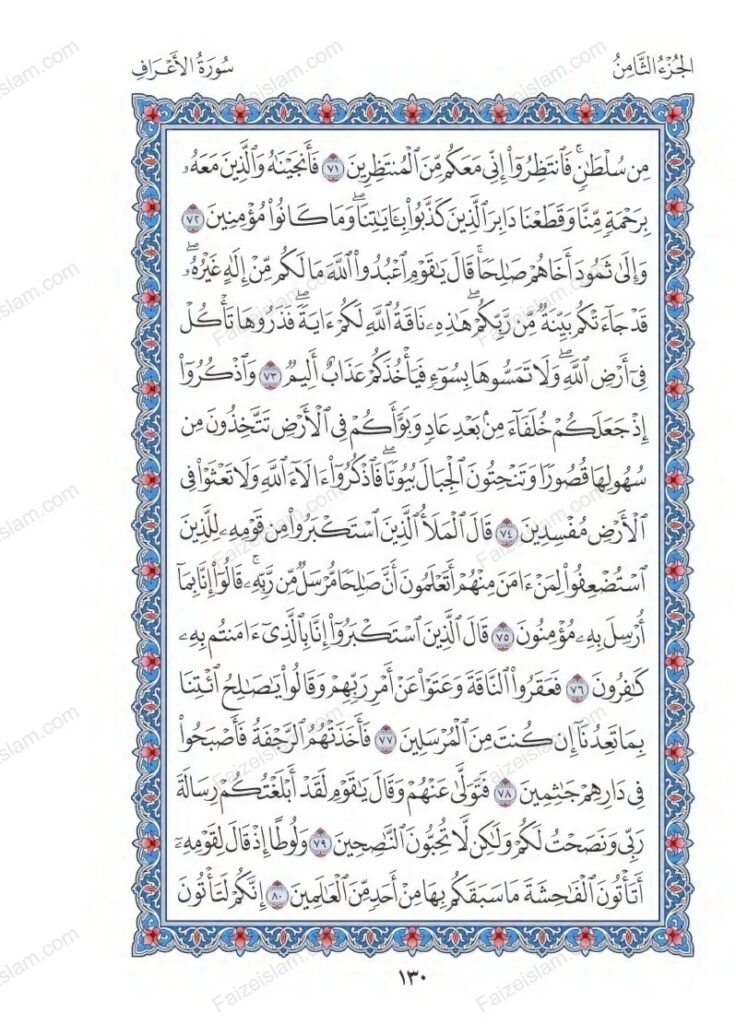 الجُزْءُ الثَّامِنُ
سُورَةُ الأَعْرَافِ
مِن سُلْطَٰنٍۚ فَٱنتَظِرُوٓا۟ إِنِّى مَعَكُم مِّنَ ٱلْمُنتَظِرِينَ ٧١ فَأَنجَيْنَٰهُ وَٱلَّذِينَ مَعَهُۥ
بِرَحْمَةٍ مِّنَّا وَقَطَعْنَا دَابِرَ ٱلَّذِينَ كَذَّبُوا۟ بِـَٔايَٰتِنَاۖ وَمَا كَانُوا۟ مُؤْمِنِينَ ٧٢
وَإِلَىٰ ثَمُودَ أَخَاهُمْ صَٰلِحًاۚ قَالَ يَٰقَوْمِ ٱعْبُدُوا۟ ٱللَّهَ مَا لَكُم مِّنْ إِلَٰهٍ غَيْرُهُۥۖ
قَدْ جَآءَتْكُم بَيِّنَةٌ مِّن رَّبِّكُمْۖ هَٰذِهِۦ نَاقَةُ ٱللَّهِ لَكُمْ ءَايَةًۖ فَذَرُوهَا تَأْكُلْ
فِىٓ أَرْضِ ٱللَّهِۖ وَلَا تَمَسُّوهَا بِسُوٓءٍ فَيَأْخُذَكُمْ عَذَابٌ أَلِيمٌ ٧٣ وَٱذْكُرُوٓا۟
إِذْ جَعَلَكُمْ خُلَفَآءَ مِنۢ بَعْدِ عَادٍ وَبَوَّأَكُمْ فِى ٱلْأَرْضِ تَتَّخِذُونَ مِن
سُهُولِهَا قُصُورًا وَتَنْحِتُونَ ٱلْجِبَالَ بُيُوتًاۖ فَٱذْكُرُوٓا۟ ءَالَآءَ ٱللَّهِ وَلَا تَعْثَوْا۟ فِى
ٱلْأَرْضِ مُفْسِدِينَ ٧٤ قَالَ ٱلْمَلَأُ ٱلَّذِينَ ٱسْتَكْبَرُوا۟ مِن قَوْمِهِۦ لِلَّذِينَ
ٱسْتُضْعِفُوا۟ لِمَنْ ءَامَنَ مِنْهُمْ أَتَعْلَمُونَ أَنَّ صَٰلِحًا مُّرْسَلٌ مِّن رَّبِّهِۦۚ قَالُوٓا۟ إِنَّا بِمَآ
أُرْسِلَ بِهِۦ مُؤْمِنُونَ ٧٥ قَالَ ٱلَّذِينَ ٱسْتَكْبَرُوٓا۟ إِنَّا بِٱلَّذِىٓ ءَامَنتُم بِهِۦ
كَٰفِرُونَ ٧٦ فَعَقَرُوا۟ ٱلنَّاقَةَ وَعَتَوْا۟ عَنْ أَمْرِ رَبِّهِمْ وَقَالُوا۟ يَٰصَٰلِحُ ٱئْتِنَا
بِمَا تَعِدُنَآ إِن كُنتَ مِنَ ٱلْمُرْسَلِينَ ٧٧ فَأَخَذَتْهُمُ ٱلرَّجْفَةُ فَأَصْبَحُوا۟
فِى دَارِهِمْ جَٰثِمِينَ ٧٨ فَتَوَلَّىٰ عَنْهُمْ وَقَالَ يَٰقَوْمِ لَقَدْ أَبْلَغْتُكُمْ رِسَالَةَ
رَبِّى وَنَصَحْتُ لَكُمْ وَلَٰكِن لَّا تُحِبُّونَ ٱلنَّٰصِحِينَ ٧٩ وَلُوطًا إِذْ قَالَ لِقَوْمِهِۦٓ
أَتَأْتُونَ ٱلْفَٰحِشَةَ مَا سَبَقَكُم بِهَا مِنْ أَحَدٍ مِّنَ ٱلْعَٰلَمِينَ ٨٠ إِنَّكُمْ لَتَأْتُونَ
١٣٠
Faizeislam.com